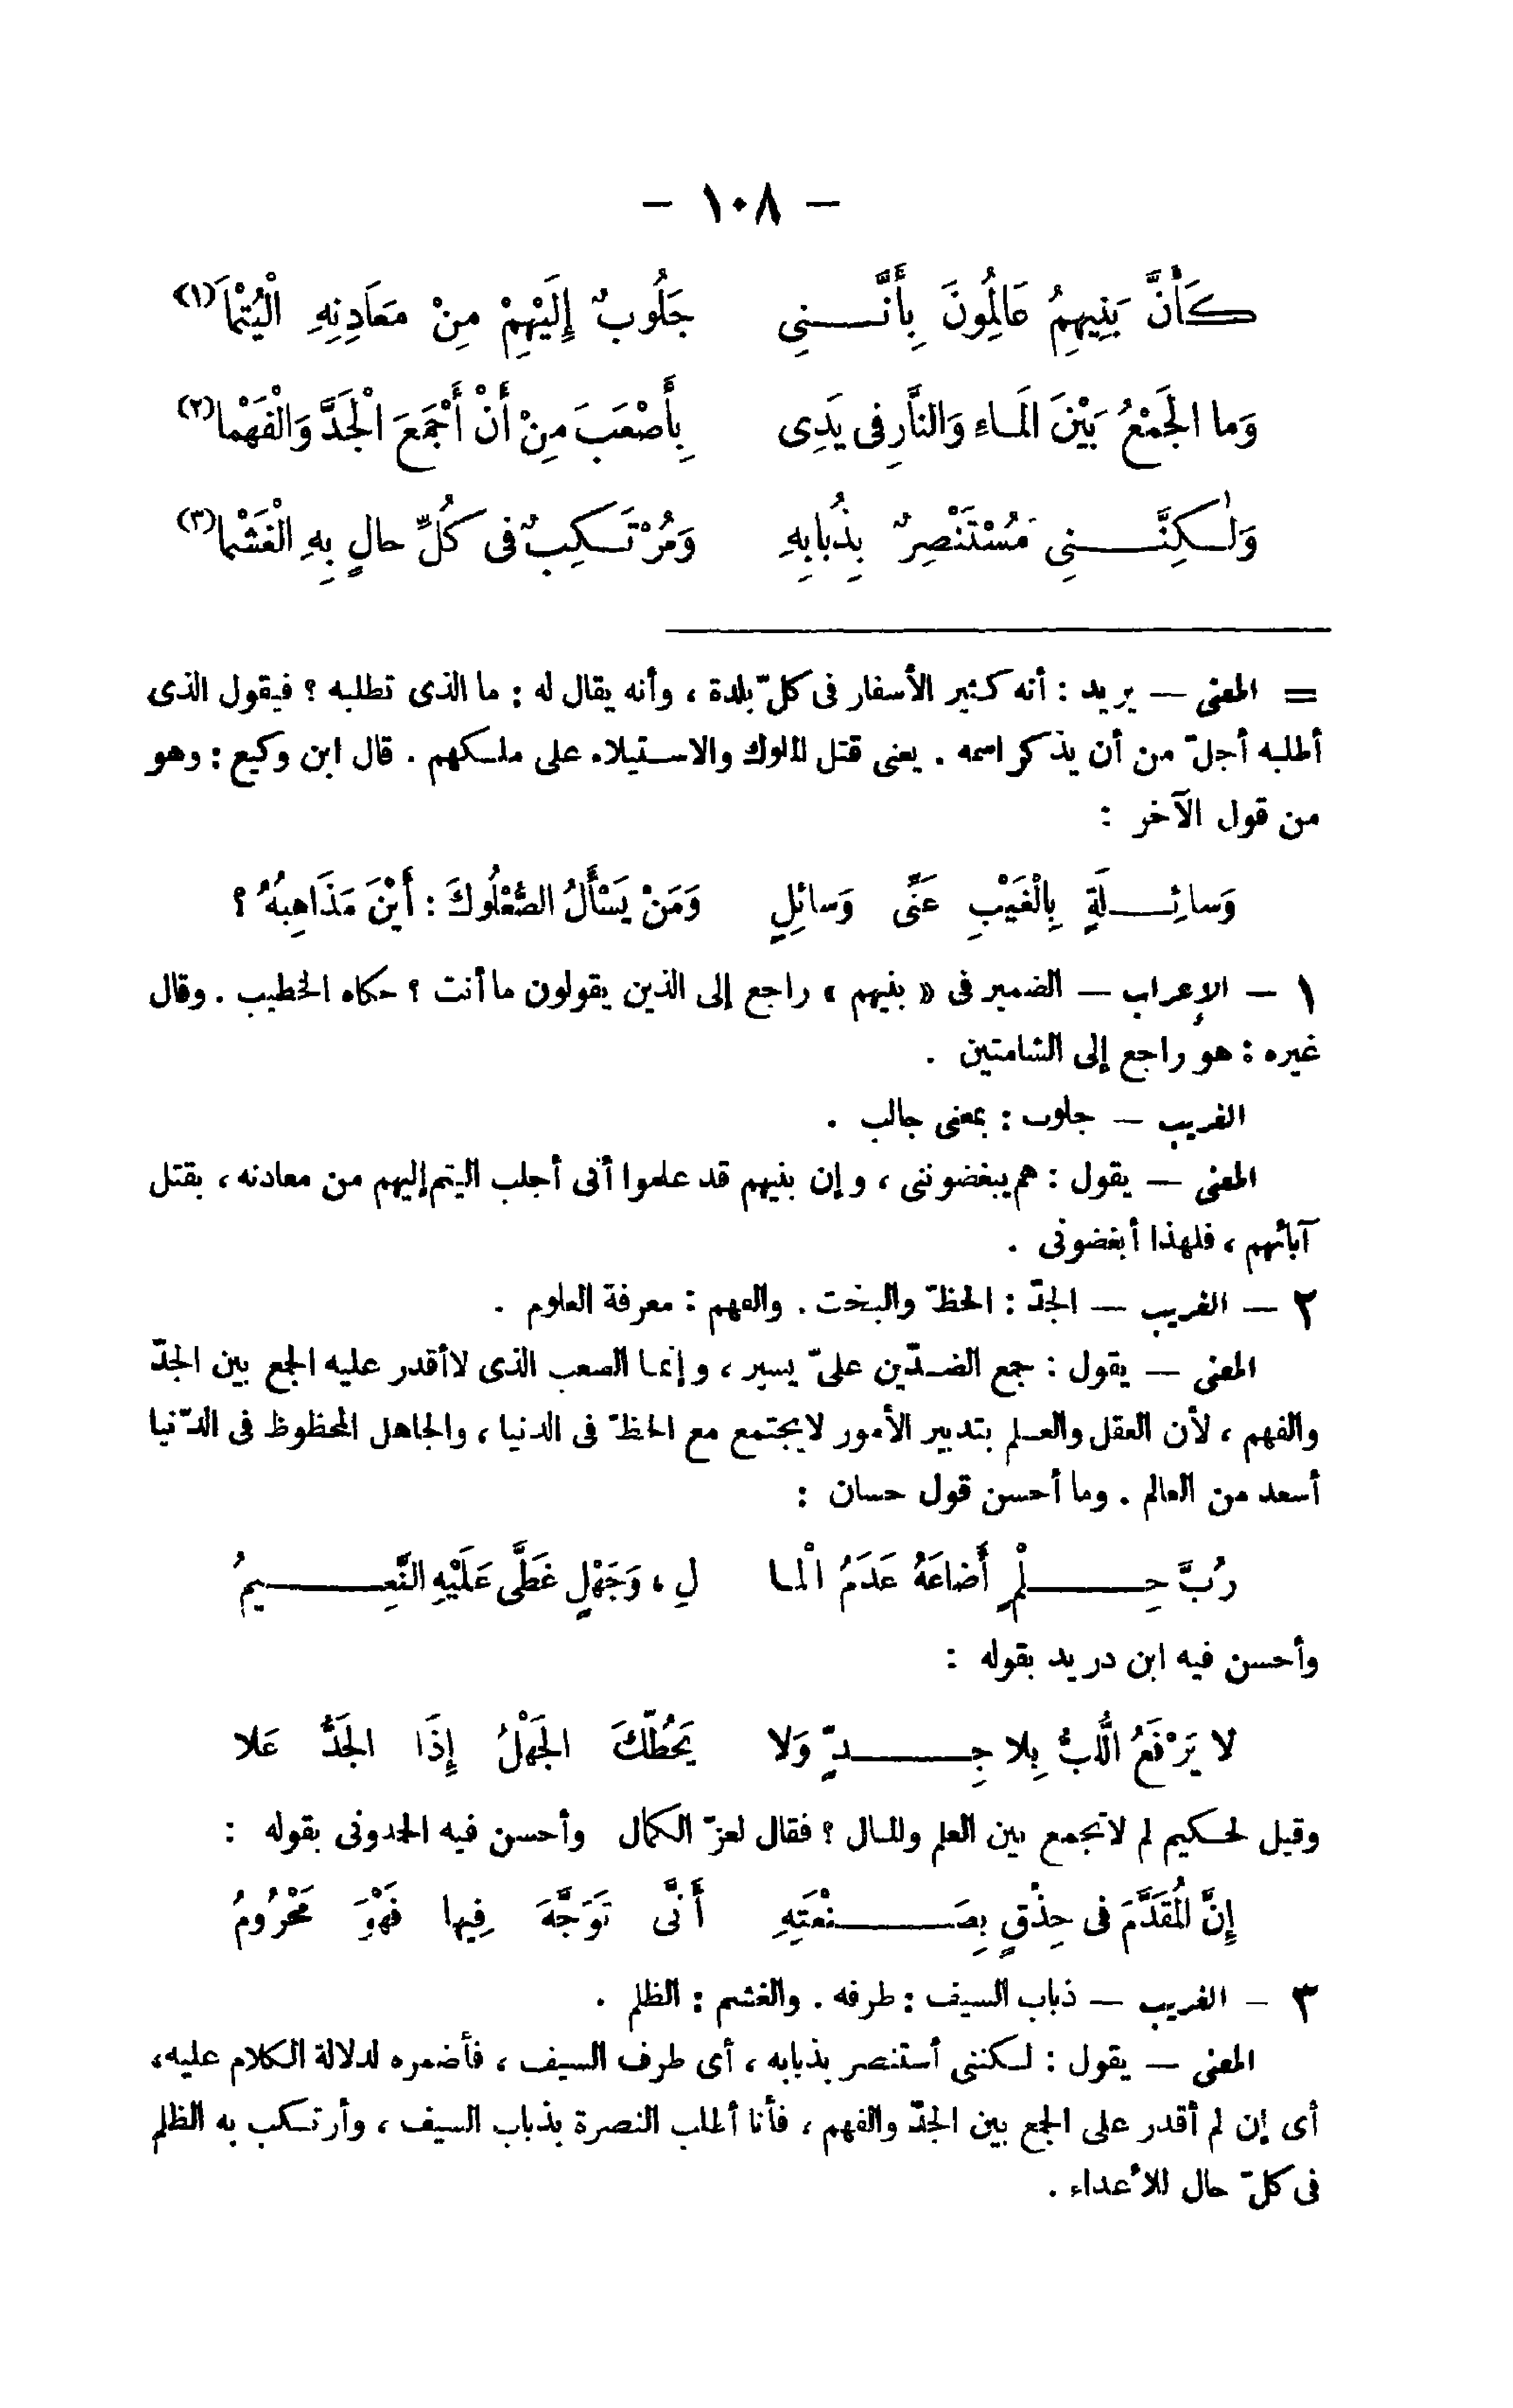 — ١٠٨ —
كَأَنَّ بَنِيهِمُ عَالِمُونَ بِأَنَّـــنِى جَلُوبٌ إِلَيْهِمْ مِنْ مَعَادِنِهِ الْيُتْمَا(١)
وَما الجَمْعُ بَيْنَ المَـاءِ وَالنَّارِ فى يَدِى بِأَصْعَبَ مِنْ أَنْ أَجْمَعَ الْجَدَّ وَالْفَهْما(٢)
وَلٰـكِنَّـــنِى مُسْتَنْصِرٌ بِذُبابِهِ وَمُرْتَـكِبٌ فى كُلِّ حالٍ بِهِ الْغَشْما(٣)
= المعنى — يريد : أنه كثير الأسفار فى كلّ بلدة ، وأنه يقال له : ما الذى تطلبه ؟ فيقول الذى
أطلبه أجلّ من أن يذكر اسمه . يعنى قتل الملوك والاستيلاء على ملـكهم . قال ابن وكيع : وهو
من قول الآخر :
وَسائِـــلَةٍ بِالْغَيْبِ عَنِّى وَسائِلٍ وَمَنْ يَسْأَلُ الصُّعْلُوكَ : أَيْنَ مَذَاهِبُهُ ؟
١ — الإعراب — الضمير فى « بنيهم » راجع إلى الذين يقولون ما أنت ؟ حكاه الخطيب . وقال
غيره : هو راجع إلى الشامتين .
الغريب — جلوب : بمعنى جالب .
المعنى — يقول : هم يبغضوننى ، وإن بنيهم قد علموا أنى أجلب اليتم إليهم من معادنه ، بقتل
آبائهم ، فلهذا أبغضونى .
٢ — الغريب — الجدّ : الحظّ والبخت . والفهم : معرفة العلوم .
المعنى — يقول : جمع الضـدّين علىّ يسير ، وإنما الصعب الذى لا أقدر عليه الجمع بين الجدّ
والفهم ، لأن العقل والعـلم بتدبير الأمور لا يجتمع مع الحظّ فى الدنيا ، والجاهل المحظوظ فى الدّنيا
أسعد من العالم . وما أحسن قول حسان :
رُبَّ حِـــلْمٍ أَضاعَهُ عَدَمُ الْمـا لِ ، وَجَهْلٍ غَطَّى عَلَيْهِ النَّعِـــيمُ
وأحسن فيه ابن دريد بقوله :
لا يَرْفَعُ اللُّبُّ بِلا جِـــدٍّ وَلا يَحُطُّكَ الجَهْلُ إِذَا الجَدُّ عَلا
وقيل لحـكيم لم لا تجمع بين العلم والمـال ؟ فقال لعزّ الكمال وأحسن فيه الحدونى بقوله :
إِنَّ المُقَدَّمَ فى حِذْقٍ بِصَـــنْعَتِهِ أَنَّى تَوَجَّهَ فِيها فَهْوَ مَحْرُومُ
٣ — الغريب — ذباب السيف : طرفه . والغشم : الظلم .
المعنى — يقول : لـكننى أستنصر بذبابه ، أى طرف السيف ، فأضمره لدلالة الـكلام عليه،
أى إن لم أقدر على الجمع بين الجدّ والفهم ، فأنا أطلب النصرة بذباب السيف ، وأرتـكب به الظلم
فى كلّ حال للأعداء .